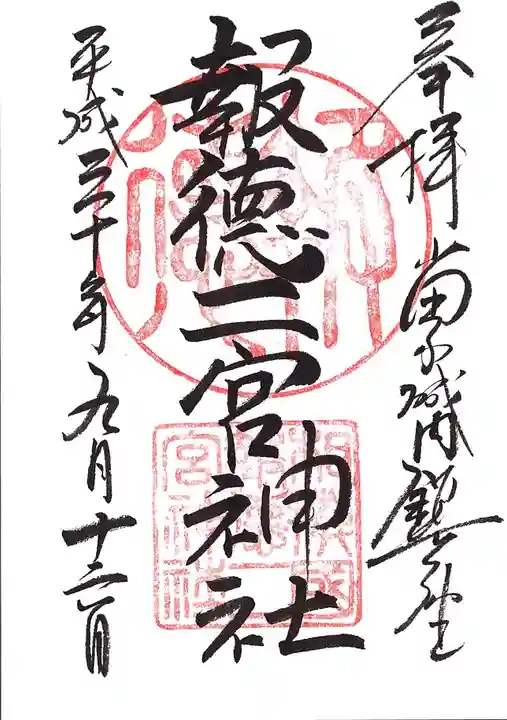 奉拝 小田原城内鎮座
報徳二宮神社
平成三十年九月十三日